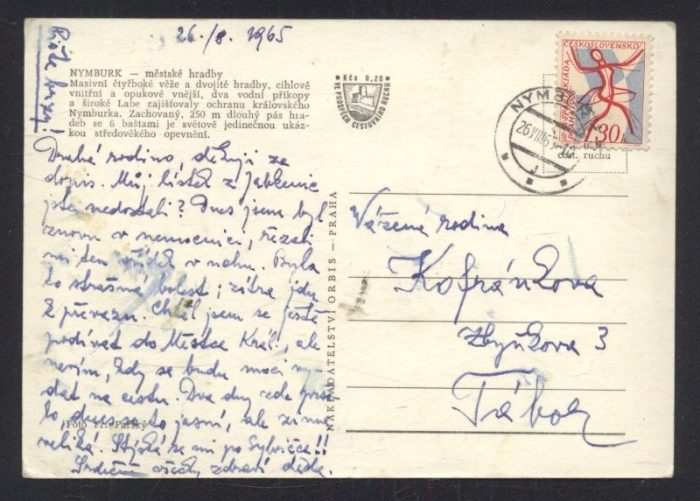 26./8. 1965
Piště brzy!
NYMBURK — městské hradby
Masivní čtyřboké věže a dvojité hradby, cihlové
vnitřní a opukové vnější, dva vodní příkopy
a široké Labe zajišťovaly ochranu královského
Nymburka. Zachovaný, 250 m dlouhý pás hra-
deb se 6 baštami je světově jedinečnou ukáz-
kou středověkého opevnění.
Drahá rodino, děkuji za
dopis. Můj lístek z Jabkenic
jste nedostali? Dnes jsem byl
znovu v nemocnici, řezali
mi ten vřed v nohu. Byla
to strašná bolest; zítra jdu
k převazu. Chtěl jsem se ještě
podívat do Městce Král., ale
nevím, kdy se budu moci vy-
dat na cestu. Dva dny zde prše-
lo, dnes je to jasné, ale zima
veliká. Stýská se mi po Sylvičce!!
Srdečně všecky zdraví děda.
Foto Fr. Farský
NAKLADATELSTVÍ ORBIS — PRAHA
Kčs 0,20
VE PROSPĚCH CESTOVNÍHO RUCHU
ČESKOSLOVENSKO
PRAHA 1965
30h
NYMBURK
26.VIII.65
cest. ruchu
Vážená rodina
Kofránkova
Zbyňkova 3
Tábor